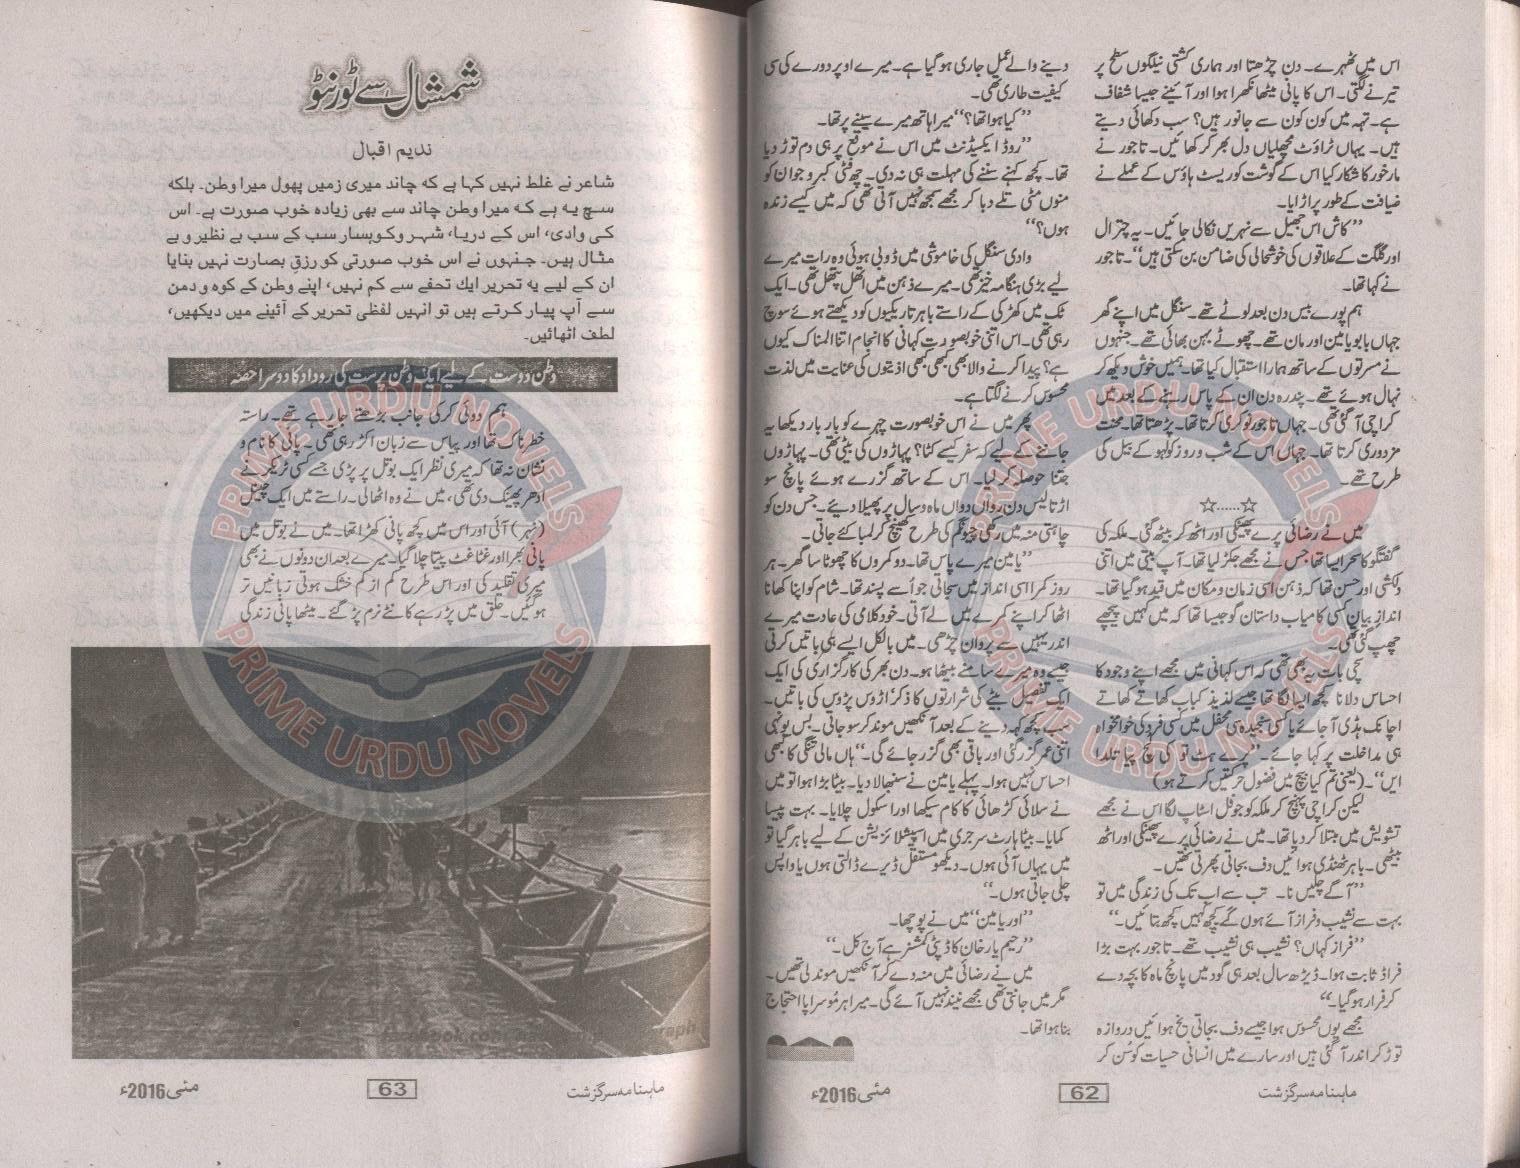 اس میں ٹھہرے۔ دن چڑھتا اور ہماری کشتی نیلگوں سطح پر
تیرنے لگتی۔ اس کا پانی میٹھا نکھرا ہوا اور آئینے جیسا شفاف
ہے۔ تہہ میں کون کون سے جانور ہیں؟ سب دکھائی دیتے
ہیں۔ یہاں ٹراؤٹ مچھلیاں دل بھر کر کھائیں۔ تاجور نے
مارخور کا شکار کیا اس کے گوشت کو ریسٹ ہاؤس کے عملے نے
ضیافت کے طور پر اڑایا۔
”کاش اس جھیل سے نہریں نکالی جائیں۔ یہ چترال
اور گلگت کے علاقوں کی خوشحالی کی ضامن بن سکتی ہیں“۔ تاجور
نے کہا تھا۔
ہم پورے بیس دن بعد لوٹے تھے۔ سنگل میں اپنے گھر
جہاں بابو یامین اور مان تھے۔ چھوٹے بہن بھائی تھے۔ جنہوں
نے مسرتوں کے ساتھ ہمارا استقبال کیا تھا۔ ہمیں خوش دیکھ کر
نہال ہوئے تھے۔ پندرہ دن ان کے پاس رہنے کے بعد میں
کراچی آ گئی تھی۔ جہاں تاجور نوکری کرتا تھا۔ پڑھتا تھا۔ محنت
مزدوری کرتا تھا۔ جہاں اس کے شب و روز کولہو کے بیل کی
طرح تھے۔
☆......☆
میں نے رضائی پرے پھینکی اور اٹھ کر بیٹھ گئی۔ ملکہ کی
گفتگو کا سحر ایسا تھا جس نے مجھے جکڑ لیا تھا۔ آپ بیتی میں اتنی
دلکشی اور حسن تھا کہ ذہن اسی زمان و مکان میں قید ہو گیا تھا۔
اندازِ بیان کسی کامیاب داستان گو جیسا تھا کہ میں کہیں پیچھے
چھپ گئی تھی۔
سچی بات یہ بھی تھی کہ اس کہانی میں مجھے اپنے وجود کا
احساس دلانا کچھ ایسا لگا تھا جیسے لذیذ کباب کھاتے کھاتے
اچانک ہڈی آ جائے یا کسی سنجیدہ سی محفل میں کسی فرد کی خوامخواہ
ہی مداخلت پر کہا جائے۔ ”پرے ہٹ تو کی بیچ پیا
ایں“۔ (یعنی تم کیا بیچ میں فضول حرکتیں کرتے ہو)
لیکن کراچی پہنچ کر ملکہ کو جو فل اسٹاپ لگا اس نے مجھے
تشویش میں مبتلا کر دیا تھا۔ میں نے رضائی پرے پھینکی اور اٹھ
بیٹھی۔ باہر ٹھنڈی ہوائیں دف بجاتی پھرتی تھیں۔
”آگے چلیں نا۔ تب سے اب تک کی زندگی میں تو
بہت سے نشیب و فراز آئے ہوں گے کچھ کہیں کچھ بتائیں۔“
”فراز کہاں؟ نشیب ہی نشیب تھے۔ تاجور بہت بڑا
فراڈ ثابت ہوا۔ ڈیڑھ سال بعد ہی گود میں پانچ ماہ کا بچہ دے
کر فرار ہو گیا۔“
مجھے یوں محسوس ہوا جیسے دف بجاتی یخ ہوائیں دروازہ
توڑ کر اندر آ گئی ہیں اور سارے میں انسانی حسیات کو سُن کر
دینے والے عمل جاری ہو گیا ہے۔ میرے اوپر دورے کی سی
کیفیت طاری تھی۔
”کیا ہوا تھا؟“ میرا ہاتھ میرے سینے پر تھا۔
”روڈ ایکسیڈنٹ میں اس نے موقع پر ہی دم توڑ دیا
تھا۔ کچھ کہنے سننے کی مہلت ہی نہ دی۔ چھ فٹی کبرو جوان کو
منوں مٹی تلے دبا کر مجھے سمجھ نہیں آتی تھی کہ میں کیسے زندہ
ہوں؟“
وادی سنگل کی خاموشی میں ڈوبی ہوئی وہ رات میرے
لیے بڑی ہنگامہ خیز تھی۔ میرے ذہن میں اتھل پتھل تھی۔ ایک
ٹک میں کھڑکی کے راستے باہر تاریکیوں کو دیکھتے ہوئے سوچ
رہی تھی۔ اس اتنی خوبصورت کہانی کا انجام اتنا المناک کیوں
ہے؟ پیدا کرنے والا بھی کبھی کبھی اذیتوں کی عنایت میں لذت
محسوس کرنے لگتا ہے۔
پھر میں نے اس خوبصورت چہرے کو بار بار دیکھا یہ
جاننے کے لیے کہ سفر کیسے کٹا؟ پہاڑوں کی بیٹی تھی۔ پہاڑوں
جتنا حوصلہ کر لیا۔ اس کے ساتھ گزرے ہوئے پانچ سو
اڑتالیس دن رواں دواں ماہ و سال پر پھیلا دیئے۔ جس دن کو
چاہتی منہ میں رکھی چیونگم کی طرح کھینچ کر لمبا کئے جاتی۔
”یامین میرے پاس تھا۔ دو کمروں کا چھوٹا سا گھر۔ ہر
روز کمرا اسی انداز میں سجاتی جو اُسے پسند تھا۔ شام کو اپنا کھانا
اٹھا کر اپنے کمرے میں لے آتی۔ خود کلامی کی عادت میرے
اندر یہیں سے پروان چڑھی۔ میں بالکل ایسے ہی باتیں کرتی
جیسے وہ میرے سامنے بیٹھا ہو۔ دن بھر کی کارگزاری کی ایک
ایک تفصیل بیٹے کی شرارتوں کا ذکر اڑوس پڑوس کی باتیں۔
سب کچھ کہہ دینے کے بعد آنکھیں موند کر سو جاتی۔ بس یونہی
اتنی عمر گزر گئی اور باقی بھی گزر جائے گی۔“ ہاں مالی تنگی کا کبھی
احساس نہیں ہوا۔ پہلے یامین نے سنبھالا دیا۔ بیٹا بڑا ہوا تو میں
نے سلائی کڑھائی کا کام سیکھا اور اسکول چلایا۔ بہت پیسا
کمایا۔ بیٹا ہارٹ سرجری میں اسپیشلائزیشن کے لیے باہر گیا تو
میں یہاں آئی ہوں۔ دیکھو مستقل ڈیرے ڈالتی ہوں یا واپس
چلی جاتی ہوں۔“
”اور یامین“ میں نے پوچھا۔
”رحیم یار خان کا ڈپٹی کمشنر ہے آج کل۔“
میں نے رضائی میں منہ دے کر آنکھیں موند لی تھیں۔
مگر میں جانتی تھی مجھے نیند نہیں آئے گی۔ میرا ہر مُو سراپا احتجاج
بنا ہوا تھا۔
ماہنامہ سرگزشت
62
مئی 2016ء
شمشال سے ٹورنٹو
ندیم اقبال
شاعر نے غلط نہیں کہا ہے کہ چاند میری زمیں پھول میرا وطن۔ بلکہ
سچ یہ ہے کہ میرا وطن چاند سے بھی زیادہ خوب صورت ہے۔ اس
کی وادی، اس کے دریا، شہر و کوہسار سب کے سب بے نظیر و بے
مثال ہیں۔ جنہوں نے اس خوب صورتی کو رزقِ بصارت نہیں بنایا
ان کے لیے یہ تحریر ایک تحفے سے کم نہیں، اپنے وطن کے کوہ و دمن
سے آپ پیار کرتے ہیں تو انہیں لفظی تحریر کے آئینے میں دیکھیں،
لطف اٹھائیں۔
وطن دوست کے لیے ایک وطن پرست کی روداد کا دوسرا حصّہ
ہم دوئی کرکی جانب بڑھتے جا رہے تھے۔ راستہ
خطرناک تھا اور پیاس سے زبان اکڑ رہی تھی۔ پانی کا نام و
نشان نہ تھا کہ میری نظر ایک بوتل پر پڑی جسے کسی ٹریکر نے
ادھر پھینک دی تھی، میں نے وہ اٹھالی۔ راستے میں ایک چینل
(نہر) آئی اور اس میں کچھ پانی کھڑا تھا۔ میں نے بوتل میں
پانی بھرا اور غٹاغٹ پیتا چلا گیا۔ میرے بعد ان دونوں نے بھی
میری تقلید کی اور اس طرح کم از کم خشک ہوتی زبانیں تر
ہو گئیں۔ حلق میں پڑ رہے کانٹے نرم پڑ گئے۔ میٹھا پانی زندگی
ماہنامہ سرگزشت
63
مئی 2016ء
PRIME URDU NOVELS
PRIME URDU NOVELS
PRIME URDU NOVELS
PRIME URDU NOVELS